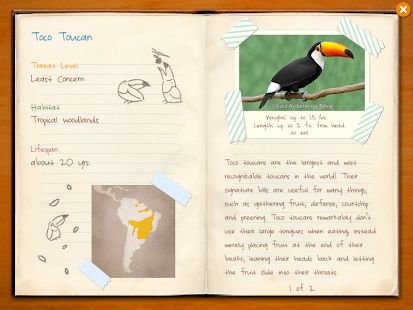 Toco Toucan
Threat Level
Least Concern
Habitat
Tropical woodlands
Lifespan
about 20 yrs.
© Luiz Antonio da Silva
Weight: up to 1.5 lbs
Length: up to 2 ft from head
to tail
Toco toucans are the largest and most
recognizable toucans in the world! Their
signature bills are useful for many things,
such as gathering fruit, defense, courtship
and preening. Toco toucans remarkably don't
use their large tongues when eating, instead
merely placing fruit at the end of their
beaks, leaning their heads back and letting
the fruit slide into their throats.
1 of 2